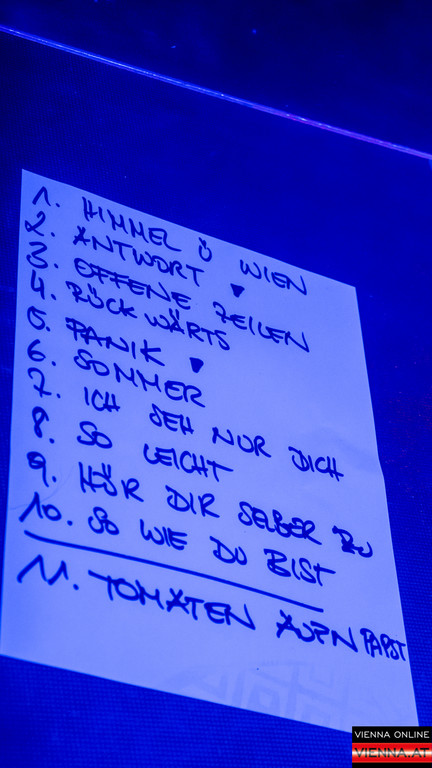 1. HIMMEL Ü WIEN
2. ANTWORT ▼
3. OFFENE ZEILEN
4. RÜCKWÄRTS
5. PANIK ▼
6. SOMMER
7. ICH SEH NUR DICH
8. SO LEICHT
9. HÖR DIR SELBER ZU
10. SO WIE DU BIST
11. TOMATEN ÄUFN PAPST
VIENNA ONLINE
VIENNA.AT